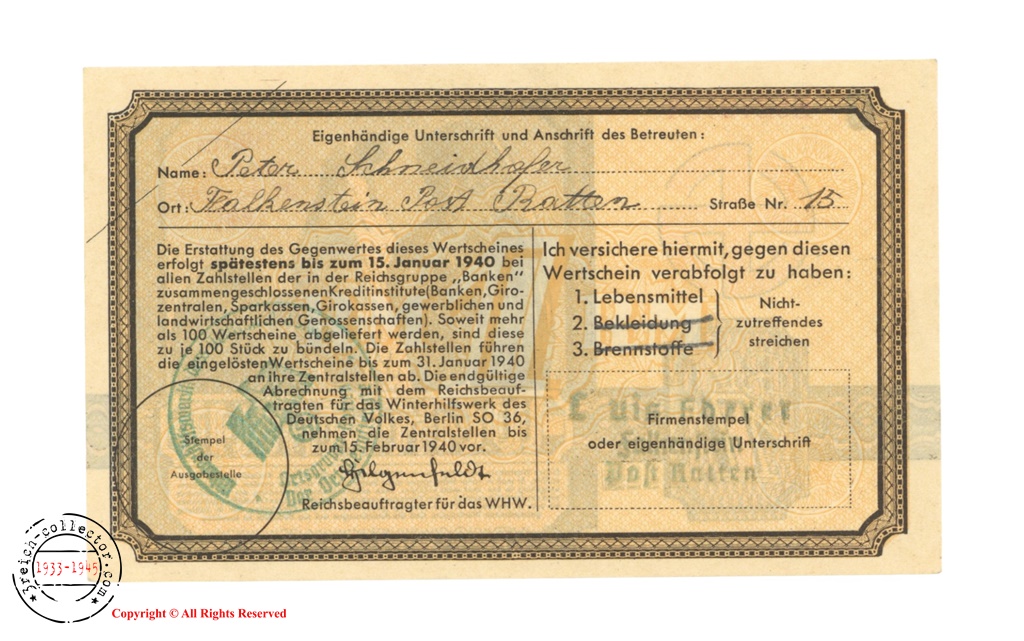 Eigenhändige Unterschrift und Anschrift des Betreuten:
Name: Peter Schneidhofer
Ort: Falkenstein Post Ratten Straße Nr. 15
Die Erstattung des Gegenwertes dieses Wertscheines
erfolgt spätestens bis zum 15. Januar 1940 bei
allen Zahlstellen der in der Reichsgruppe „Banken"
zusammengeschlossenen Kreditinstitute (Banken, Giro-
zentralen, Sparkassen, Girokassen, gewerblichen und
landwirtschaftlichen Genossenschaften). Soweit mehr
als 100 Wertscheine abgeliefert werden, sind diese
zu je 100 Stück zu bündeln. Die Zahlstellen führen
die eingelösten Wertscheine bis zum 31. Januar 1940
an ihre Zentralstellen ab. Die endgültige
Abrechnung mit dem Reichsbeauf-
tragten für das Winterhilfswerk des
Deutschen Volkes, Berlin SO 36,
nehmen die Zentralstellen bis
zum 15. Februar 1940 vor.
Hilgenfeldt
Reichsbeauftragter für das WHW.
Stempel
der
Ausgabestelle
Ich versichere hiermit, gegen diesen
Wertschein verabfolgt zu haben:
1. Lebensmittel
2. Bekleidung
3. Brennstoffe
Nicht-
zutreffendes
streichen
Firmenstempel
oder eigenhändige Unterschrift
Post Ratten
3reich-collector.com
1933-1945
Copyright © All Rights Reserved